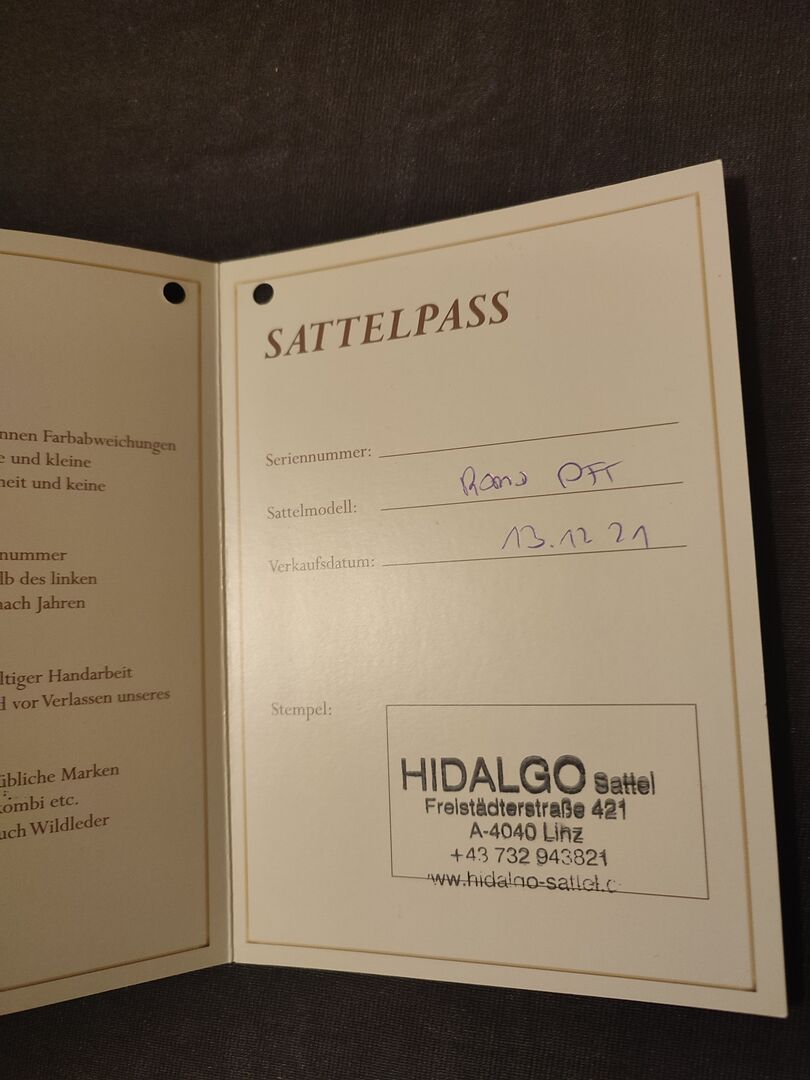 nnen Farbabweichungen
e und kleine
heit und keine
nummer
lb des linken
nach Jahren
ltiger Handarbeit
d vor Verlassen unseres
übliche Marken
kombi etc.
uch Wildleder
SATTELPASS
Seriennummer:
Sattelmodell:
Verkaufsdatum: 13.12 21
Stempel:
HIDALGO Sattel
Freistädterstraße 421
A-4040 Linz
+43 732 943821
www.hidalgo-sattel.c